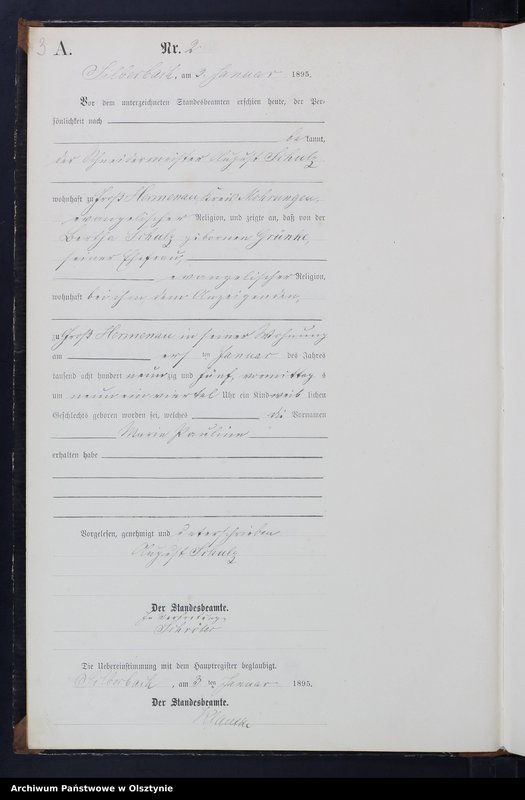 3
A.
Nr. 2
Silberbach, am 3. Januar 1895.
Vor dem unterzeichneten Standesbeamten erschien heute, der Per-
sönlichkeit nach
be kannt,
der Schneidermeister August Schulz
wohnhaft zu Groß Hermenau Kreis Mohrungen,
evangelischer Religion, und zeigte an, daß von der
Bertha Schulz geborenen Grünke,
seiner Ehefrau,
evangelischer Religion,
wohnhaft bei ihm dem Anzeigenden,
zu Groß Hermenau in seiner Wohnung
am ersten Januar des Jahres
tausend acht hundert neunzig und fünf, vormittags
um neun ein viertel Uhr ein Kind weiblichen
Geschlechts geboren worden sei, welches die Vornamen
Marie Pauline
erhalten habe
Vorgelesen, genehmigt und unterschrieben
August Schulz
Der Standesbeamte.
In Vertretung.
Schröter
Die Uebereinstimmung mit dem Hauptregister beglaubigt.
Silberbach, am 3ten Januar 1895.
Der Standesbeamte.
Archiwum Państwowe w Olsztynie